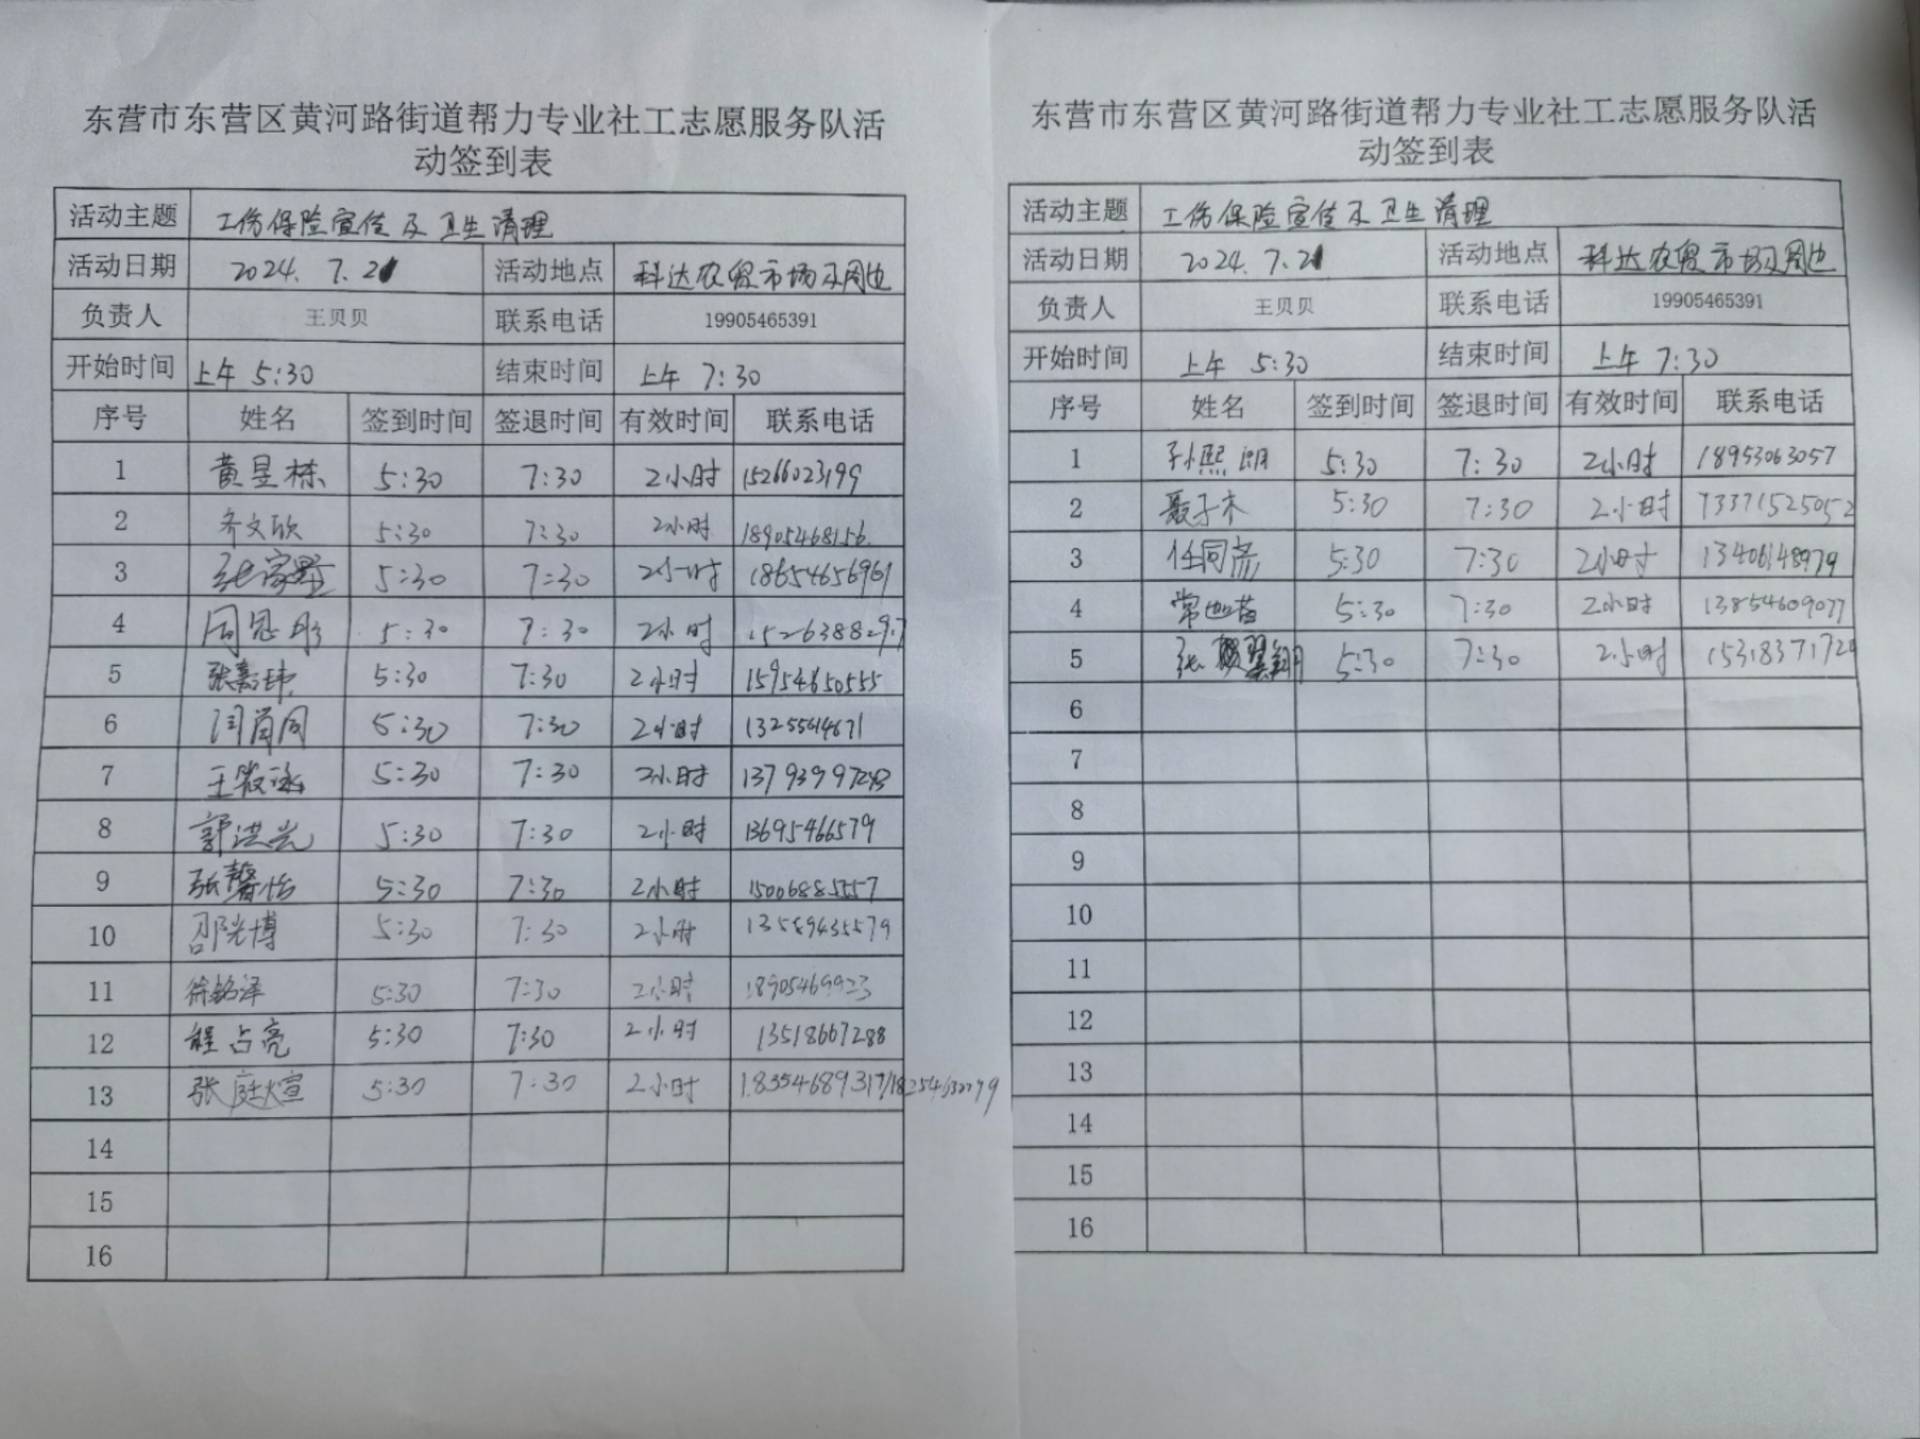 东营市东营区黄河路街道帮力专业社工志愿服务队活
动签到表
活动主题 工伤保险宣传及卫生清理
活动日期 2024.7.21 活动地点 科达农贸市场及周边
负责人 王贝贝 联系电话 19905465391
开始时间 上午 5:30 结束时间 上午 7:30
序号 姓名 签到时间 签退时间 有效时间 联系电话
1 黄昱栋 5:30 7:30 2小时 15266023199
2 齐文欣 5:30 7:30 2小时 18905468156
3 张家墅 5:30 7:30 2小时 18654656961
4 周恩彤 5:30 7:30 2小时
5 张嘉玮 5:30 7:30 2小时 15954650555
6 闫肖同 5:30 7:30 2小时 13255614671
7 5:30 7:30 2小时
8 郭洪岩 5:30 7:30 2小时 13695466579
9 张馨怡 5:30 7:30 2小时 15006885557
10 邵光博 5:30 7:30 2小时 13589435579
11 徐铭泽 5:30 7:30 2小时 18905469923
12 程占亮 5:30 7:30 2小时 13518667288
13 张庭煊 5:30 7:30 2小时 18354689317/
14
15
16
东营市东营区黄河路街道帮力专业社工志愿服务队活
动签到表
活动主题 工伤保险宣传及卫生清理
活动日期 2024.7.21 活动地点 科达农贸市场及周边
负责人 王贝贝 联系电话 19905465391
开始时间 上午 5:30 结束时间 上午 7:30
序号 姓名 签到时间 签退时间 有效时间 联系电话
1 孙熙朗 5:30 7:30 2小时 18953063057
2 聂子木 5:30 7:30 2小时 73371525052
3 任同 5:30 7:30 2小时 13406148979
4 常迦苗 5:30 7:30 2小时 13854609077
5 张 翔 5:30 7:30 2小时
6
7
8
9
10
11
12
13
14
15
16